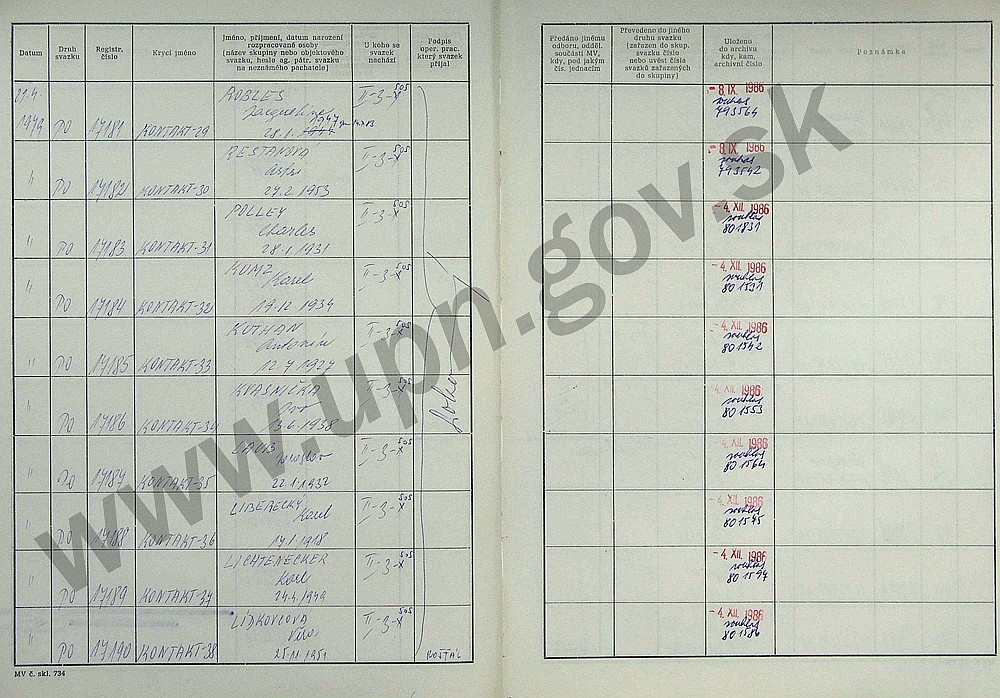 Datum
Druh svazku
Registr. číslo
Krycí jméno
Jméno, příjmení, datum narození
rozpracované osoby
(název skupiny nebo objektového
svazku, heslo ag. pátr. svazku
na neznámého pachatele)
U koho se
svazek
nachází
Podpis
oper. prac.
který svazek
přijal
Předáno jinému
odboru, odděl.
součásti MV,
kdy, pod jakým
čís. jednacím
Převedeno do jiného
druhu svazku
(zařazen do skup.
svazku číslo
nebo uvést čísla
svazků zařazených
do skupiny)
Uloženo
do archivu
kdy, kam,
archivní číslo
Poznámka
1979 PO 17181 KONTAKT-29 ROBLES II-3-X 505
28.1.
- 8. IX. 1986
793564
" PO 17182 KONTAKT-30 RESTANOVÁ II-3-X 505
27.2.1953
- 8. IX. 1986
793542
" PO 17183 KONTAKT-31 POLLEY Charles II-3-X 505
28.1.1931
- 4. XII. 1986
801831
" PO 17184 KONTAKT-32 KUMZ Karel II-3-X 505
19.12.1934
- 4. XII. 1986
801531
" PO 17185 KONTAKT-33 KOTHAN Antonín II-3-X 505
12.7.1927
- 4. XII. 1986
801542
" PO 17186 KONTAKT-34 KVASNIČKA II-3-X 505
3.6.1938
4. XII. 1986
801553
" PO 17187 KONTAKT-35 LAUB Jaroslav II-3-X 505
22.1.1932
4. XII. 1986
801564
" PO 17188 KONTAKT-36 LIBERECKÝ Karel II-3-X 505
17.1.1918
- 4. XII. 1986
801575
" PO 17189 KONTAKT-37 LICHTENECKER Karel II-3-X 505
24.4.1949
- 4. XII. 1986
801597
" PO 17190 KONTAKT-38 LÍDKOVLOVÁ Věra II-3-X 505
25.11.1951
KOŠŤÁL
- 4. XII. 1986
801586
MV č. skl. 734
www.upn.gov.sk